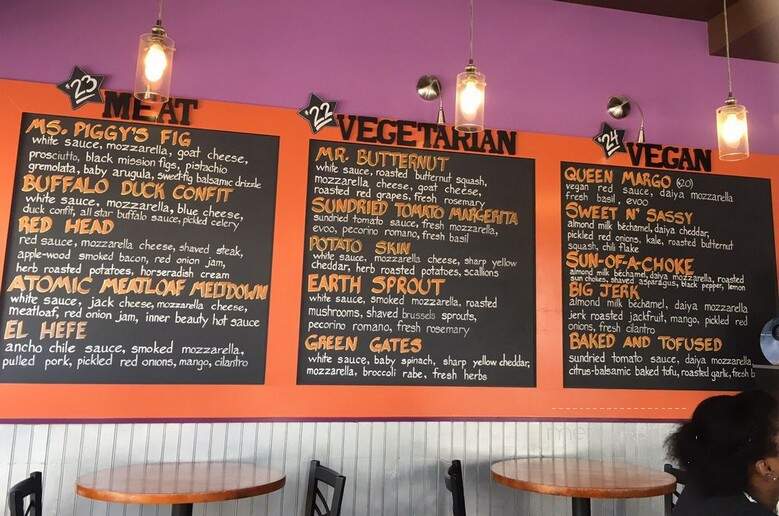 '23
MEAT
MS. PIGGY'S FIG
white sauce, mozzarella, goat cheese,
prosciutto, black mission figs, pistachio
gremolata, baby arugula, sweet fig balsamic drizzle
BUFFALO DUCK CONFIT
white sauce, mozzarella, blue cheese,
duck confit, all star buffalo sauce, pickled celery
RED HEAD
red sauce, mozzarella cheese, shaved steak,
apple-wood smoked bacon, red onion jam,
herb roasted potatoes, horseradish cream
ATOMIC MEATLOAF MELTDOWN
white sauce, jack cheese, mozzarella cheese,
meatloaf, red onion jam, inner beauty hot sauce
EL HEFE
ancho chile sauce, smoked mozzarella,
pulled pork, pickled red onions, mango, cilantro
'22
VEGETARIAN
MR. BUTTERNUT
white sauce, roasted butternut squash,
mozzarella cheese, goat cheese,
roasted red grapes, fresh rosemary
SUNDRIED TOMATO MARGERITA
sundried tomato sauce, fresh mozzarella,
evoo, pecorino romano, fresh basil
POTATO SKIN
white sauce, mozzarella cheese, sharp yellow
cheddar, herb roasted potatoes, scallions
EARTH SPROUT
white sauce, smoked mozzarella, roasted
mushrooms, shaved brussels sprouts,
pecorino romano, fresh rosemary
GREEN GATES
white sauce, baby spinach, sharp yellow cheddar,
mozzarella, broccoli rabe, fresh herbs
'24
VEGAN
QUEEN MARGO (20)
vegan red sauce, daiya mozzarella
fresh basil, evoo
SWEET N' SASSY
almond milk béchamel, daiya cheddar,
pickled red onions, kale, roasted butternut
squash, chili flake
SUN-OF-A-CHOKE
almond milk béchamel, daiya mozzarella, roasted
sun chokes, shaved asparagus, black pepper, lemon
BIG JERK
almond milk béchamel, daiya mozzarella
jerk roasted jackfruit, mango, pickled red
onions, fresh cilantro
BAKED AND TOFUSED
sundried tomato sauce, daiya mozzarella,
citrus-balsamic baked tofu, roasted garlic, fresh b